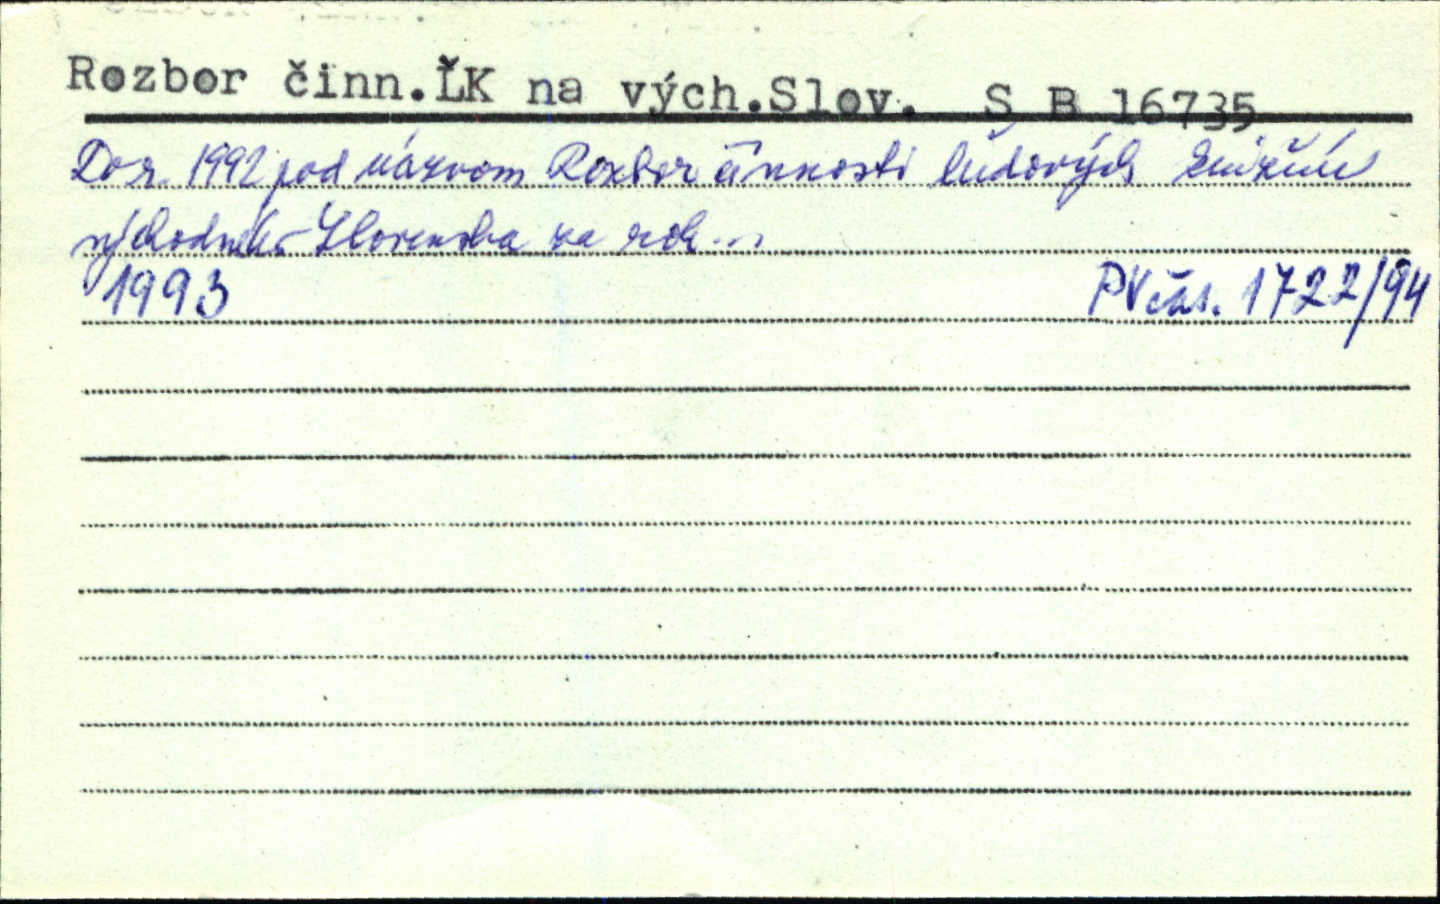 Rozbor činn.ĽK na vých.Slov. S B 16735
Do r. 1992 pod názvom Rozbor činnosti ľudových knižníc
východného Slovenska za rok ...
1993 PVčas. 1722/94